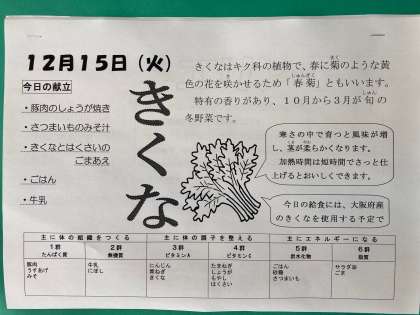 12月15日(火)
今日の献立
・豚肉のしょうが焼き
・さつまいものみそ汁
・きくなとはくさいの
ごまあえ
・ごはん
・牛乳
きくな
きくなはキク科の植物で、春に菊のような黄
色の花を咲かせるため「春菊」ともいいます。
特有の香りがあり、10月から3月が旬の
冬野菜です。
寒さの中で育つと風味が増
し、葉が柔らかくなります。
加熱時間は短時間でさっと仕
上げるとおいしくできます。
今日の給食には、大阪府産
のきくなを使用する予定で
主に体の組織をつくる
主に体の調子を整える
主にエネルギーになる
1群 2群 3群 4群 5群 6群
たんぱく質 無機質 ビタミンA ビタミンC 炭水化物 脂質
豚肉 牛乳 にんじん たまねぎ ごはん サラダ油
うすあげ にぼし 青ねぎ しょうが 砂糖 ごま
みそ きくな もやし さつまいも
はくさい